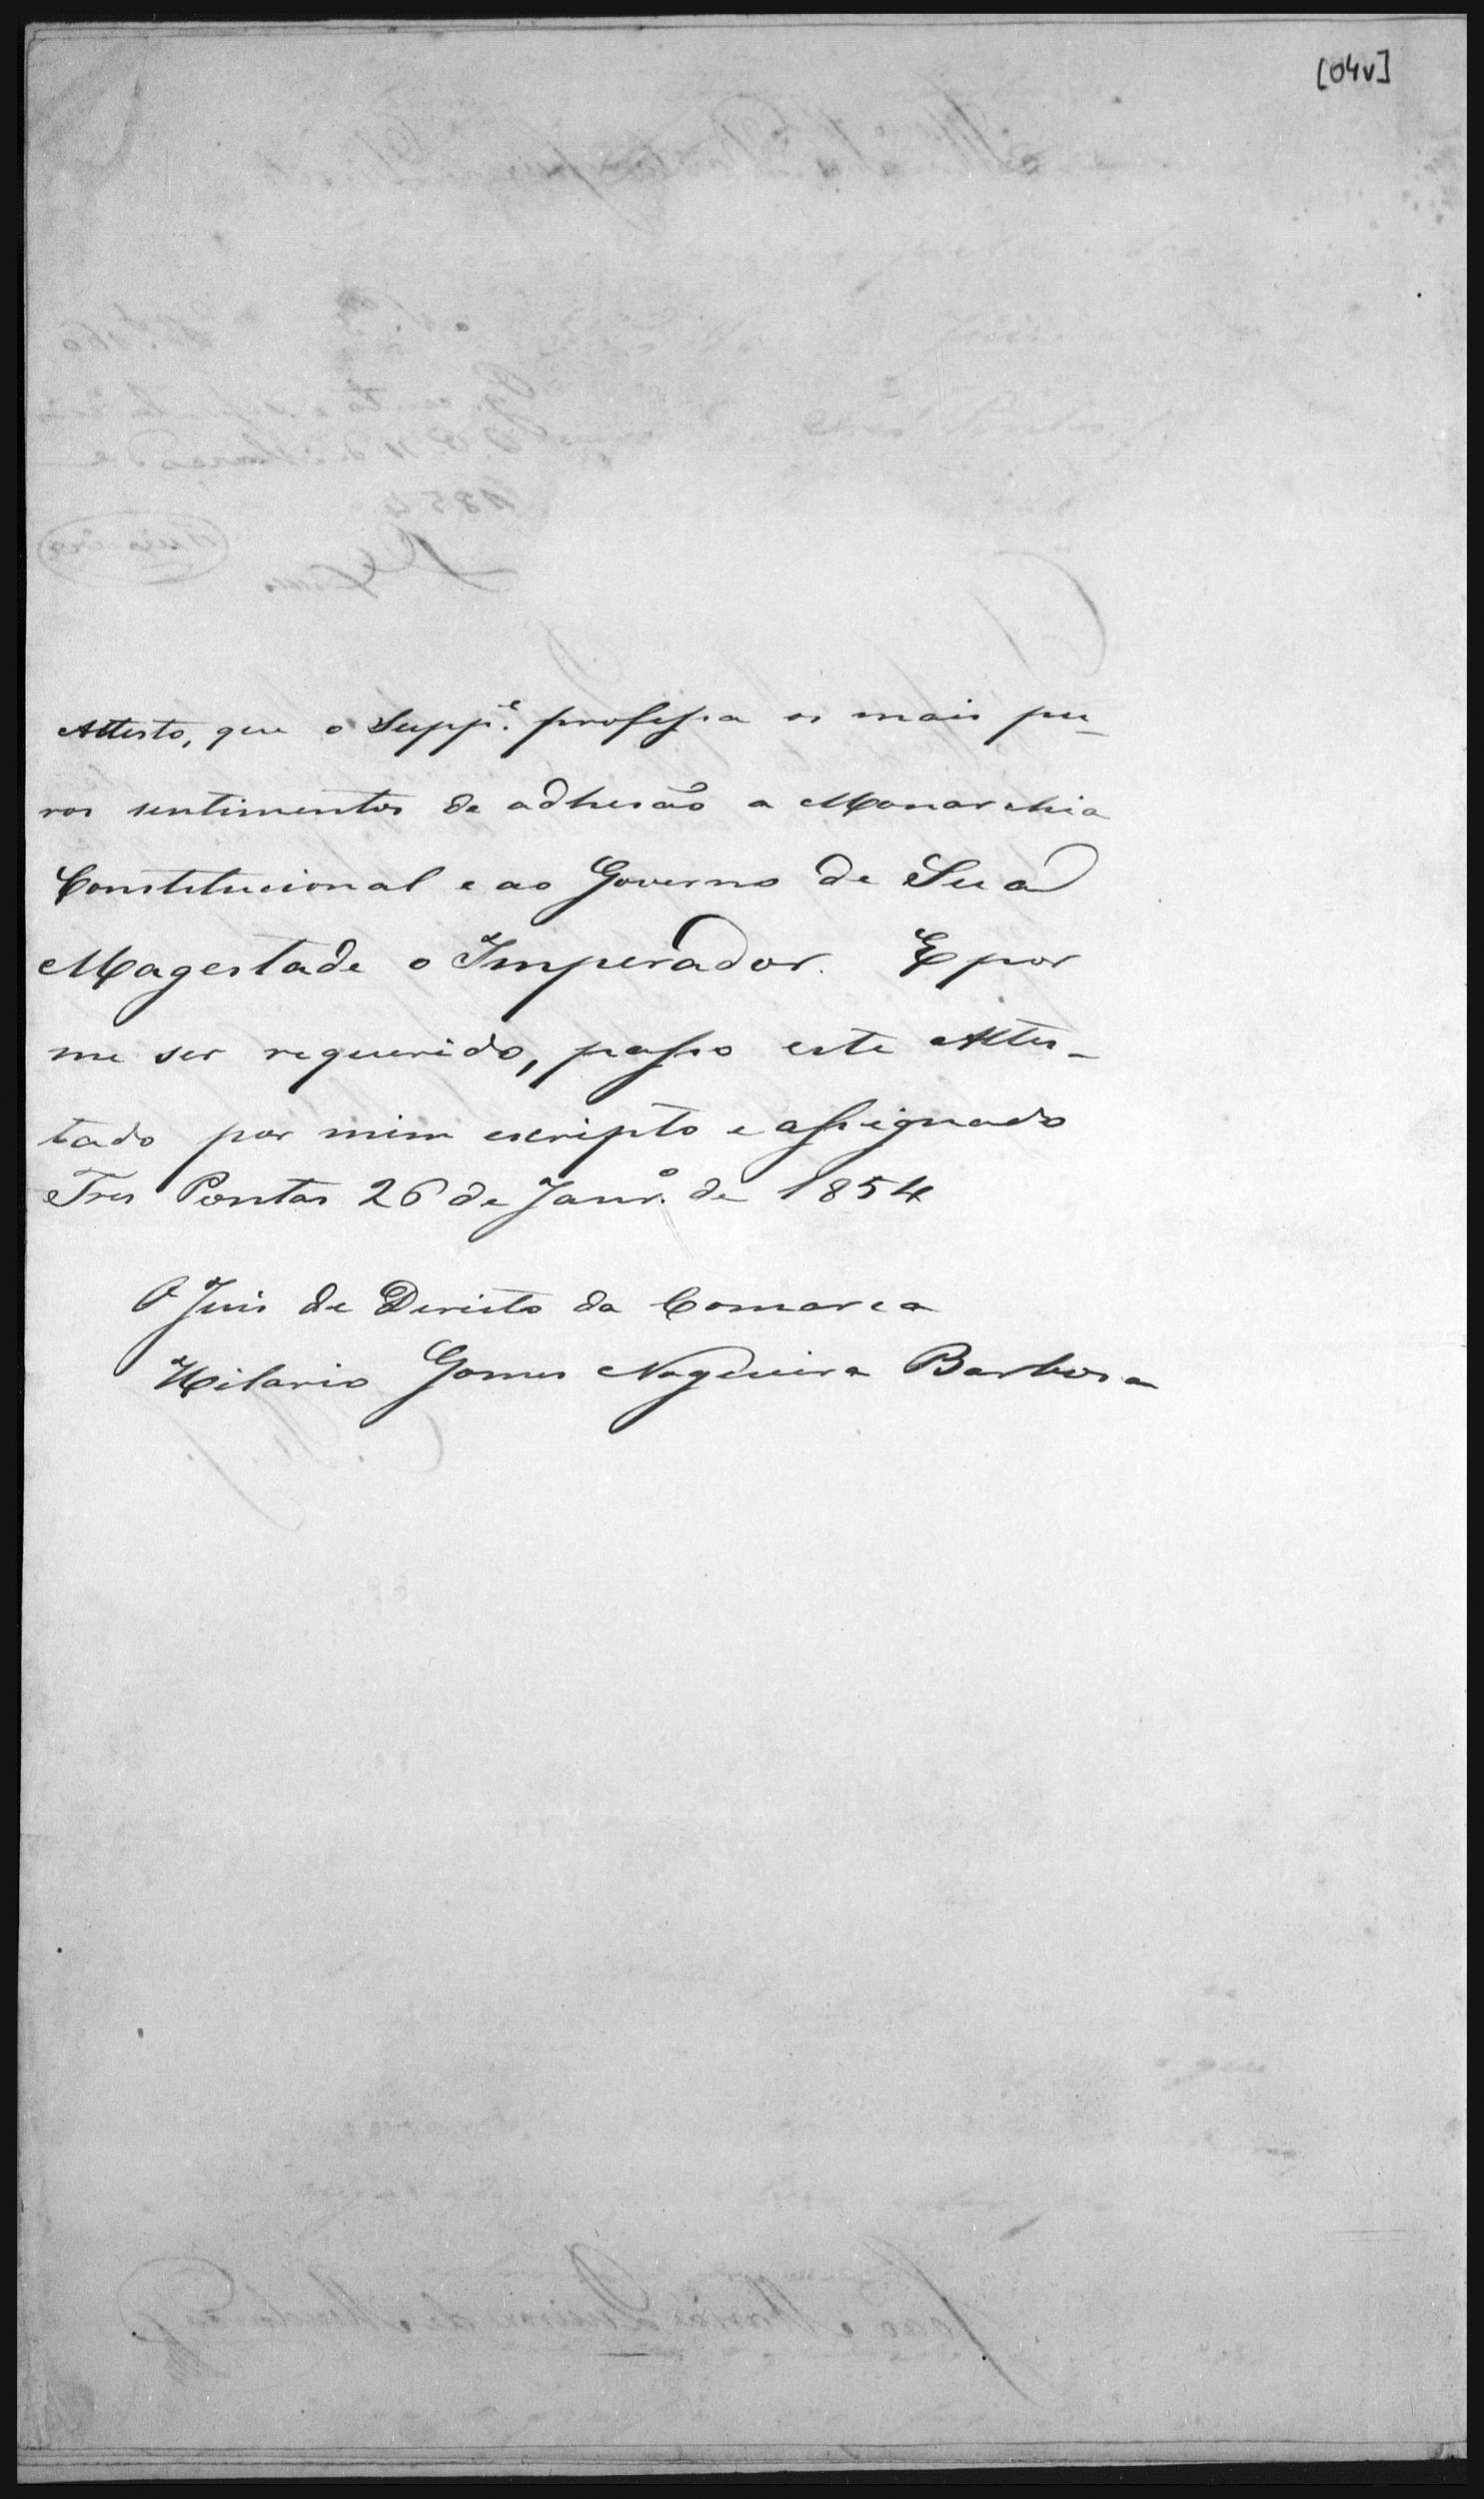 [04v]
Attesto, que o Supp.e professa os mais pu-
ros sentimentos de adhesão a Monarchia
Constitucional e ao Governo de Sua
Magestade o Imperador. E por
me ser requerido, passo este Attes-
tado por mim escripto e assignado
Tres Pontas 26 de Janr.o de 1854
O Juis de Dereito da Comarca
Hilario Gomes Nogueira Barbosa